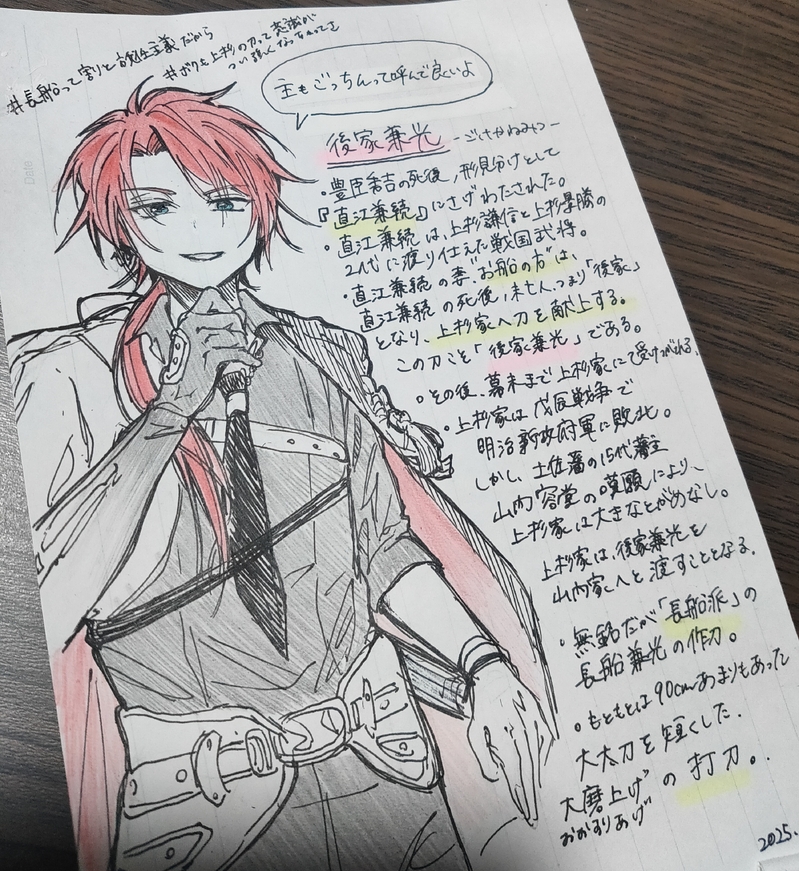 #長船って割と自由主義だから
#ボクも上杉の刀って意識が
つい強くなっちゃってさ
主もごっちんって呼んで良いよ
後家兼光 -ごけかねみつ-
・豊臣秀吉の死後、形見分けとして
『直江兼続』にさげわたされた。
・直江兼続は、上杉謙信と上杉景勝の
2代に渡り仕えた戦国武将。
・直江兼続の妻"お船の方"は、
直江兼続の死後、未亡人、つまり「後家」
となり、上杉家へ刀を献上する。
この刀こそ「後家兼光」である。
・その後、幕末まで上杉家にて受けつがれる。
・上杉家は戊辰戦争で
明治新政府軍に敗北。
しかし、土佐藩の15代藩主
山内容堂の嘆願により、
上杉家は大きなとがめなし。
上杉家は、後家兼光を
山内家へと渡すこととなる。
・無銘だが「長船派」の
長船兼光の作刀。
・もともとは90cmあまりもあった
大太刀を短くした、
大磨上げの打刀。
おおすりあげ
2025.
Date